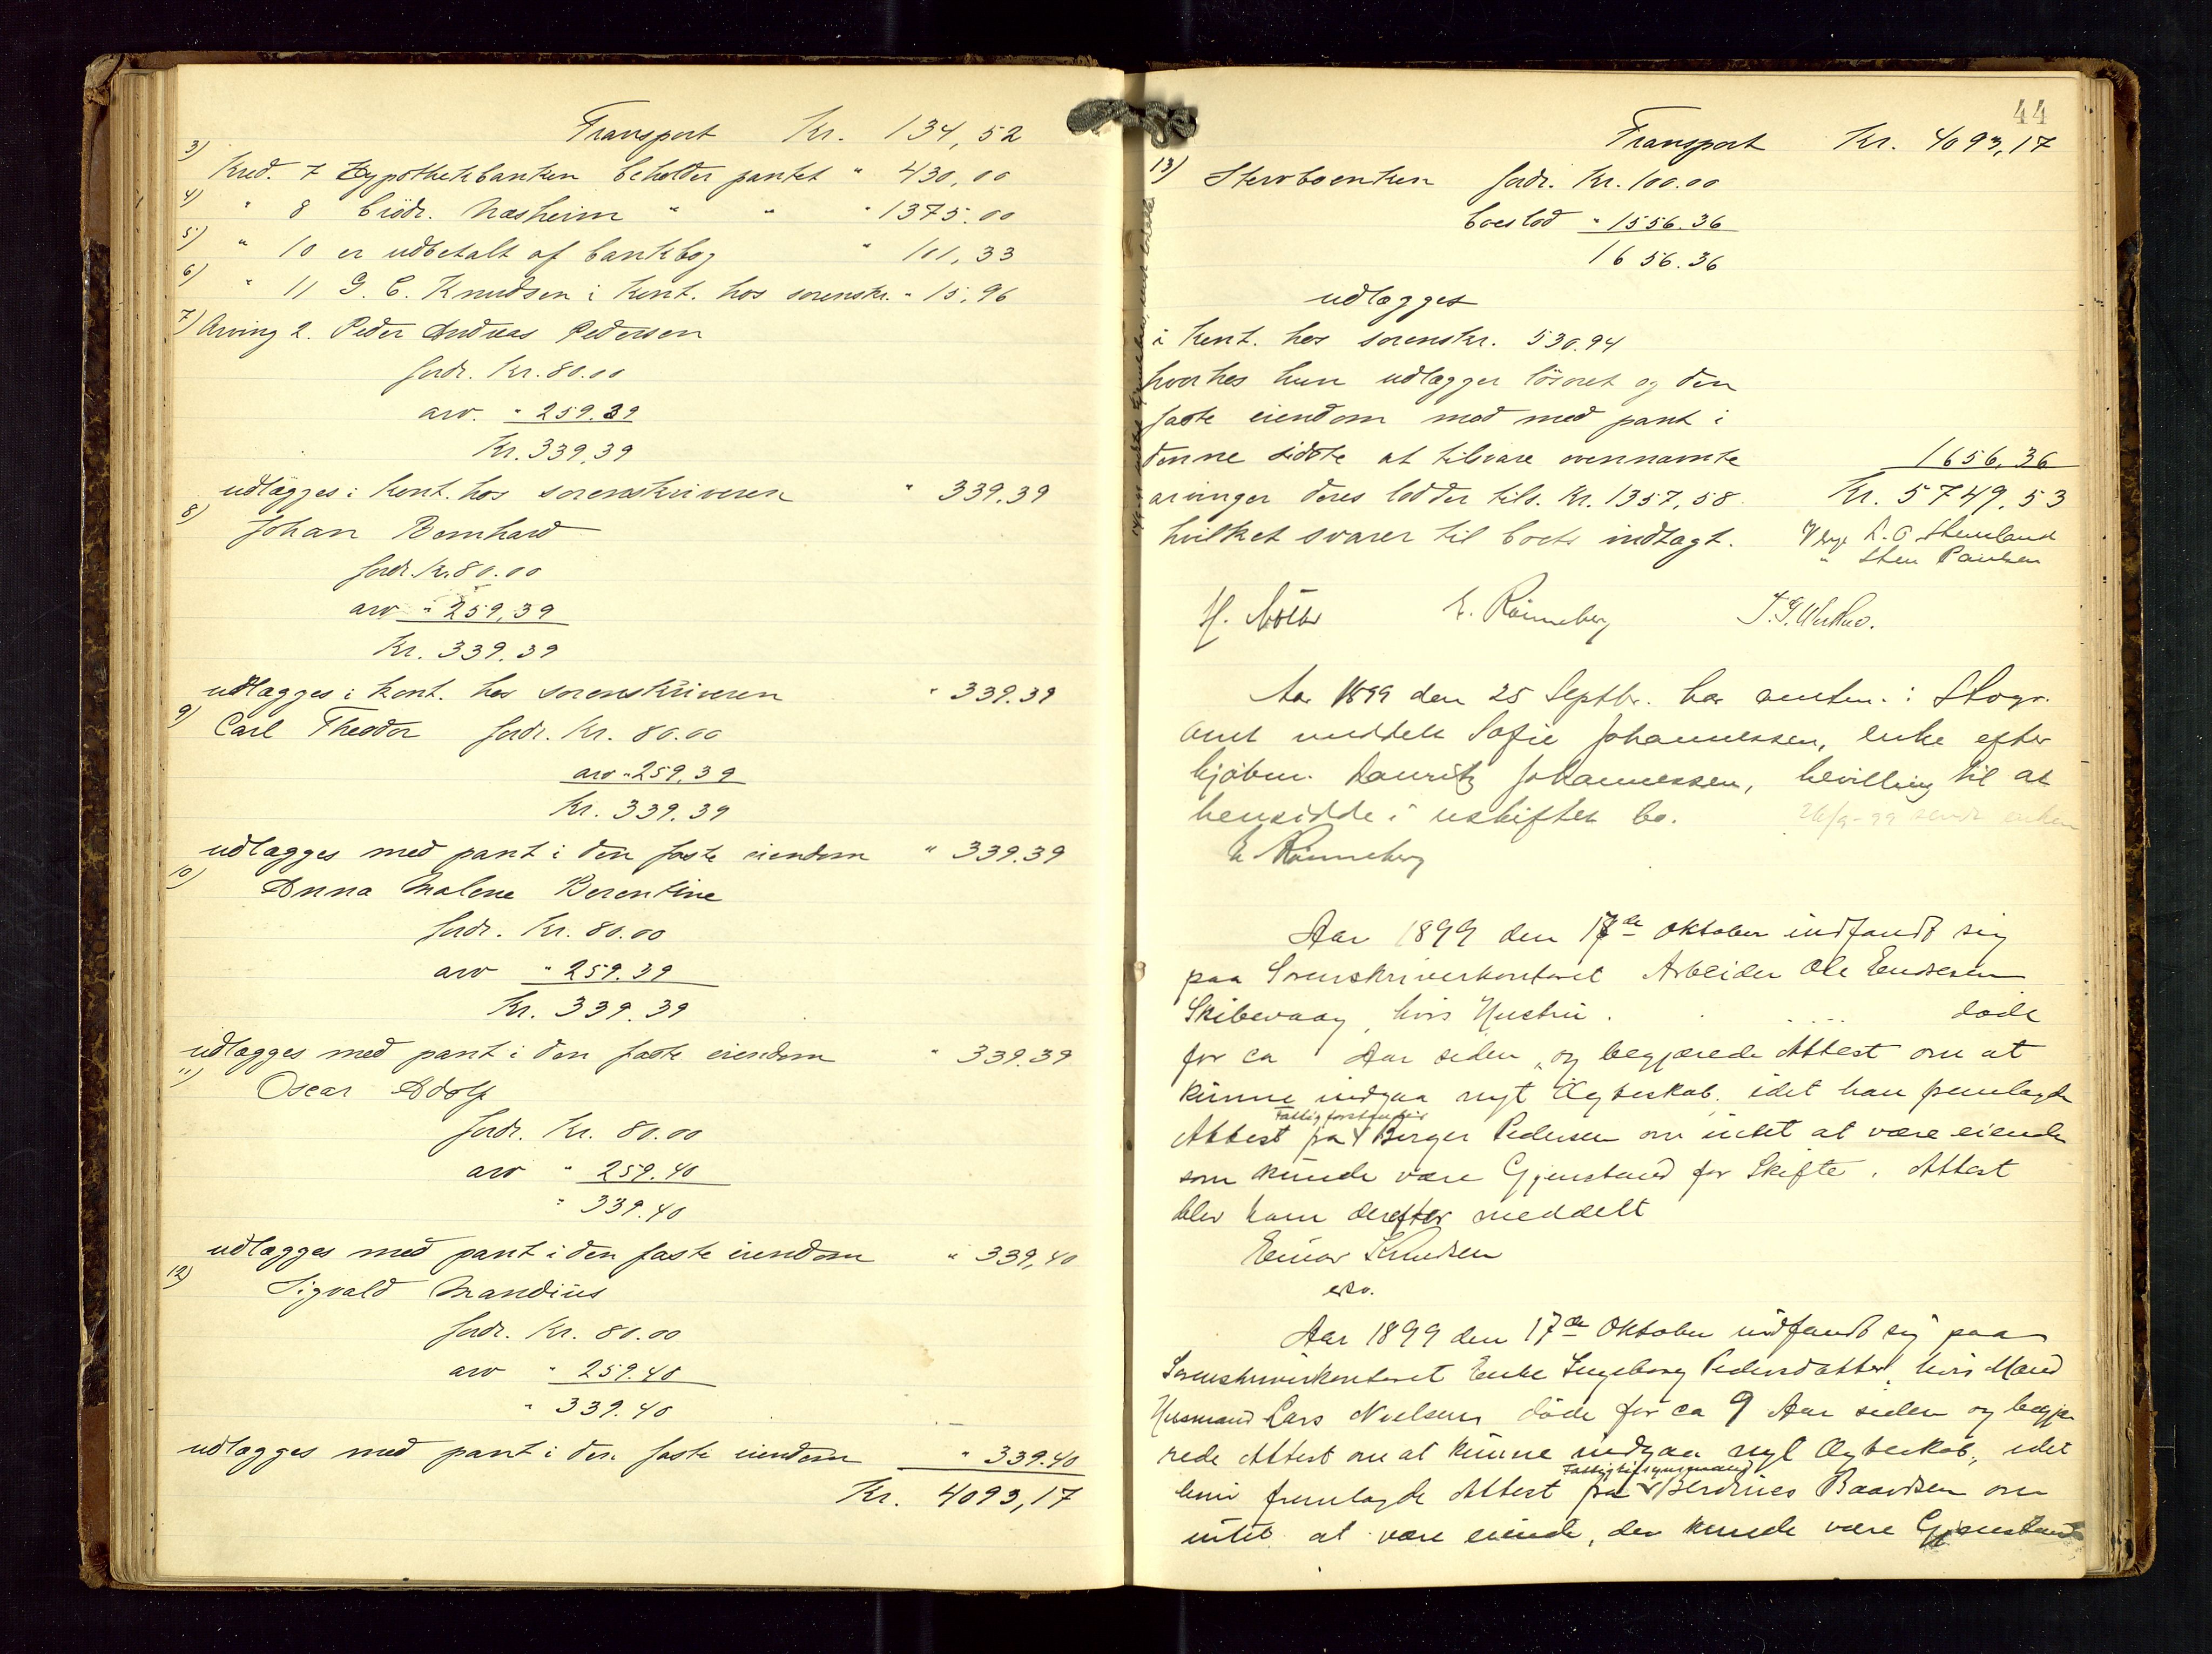 Transport Kr. 134,52
3) Kred. 7 Hypothekbanken beholder pantet " 430,00
4) " 8 brödr. Næsheim " " " 1375.00
5) " 10 er udbetalt af bankbog " 101,33
6) " 11 G. C. Knudsen i kont. hos sorenskr. " 15,96
7) Arving 2. Peder Andreas Pedersen
fordr. Kr. 80.00
arv. " 259.39
Kr. 339,39
udlægges i kont. hos sorenskriveren " 339.39
8) Johan Bernhard
fordr. Kr. 80.00
arv " 259,39
Kr. 339.39
udlægges i kont. hos sorenskriveren " 339.39
9) Carl Theodor fordr. Kr. 80.00
arv " 259.39
Kr. 339.39
udlægges med pant i den faste eiendom " 339.39
10) Anna Malene Berentine
fordr. Kr. 80.00
arv " 259.39
Kr. 339.39
udlægges med pant i den faste eiendom " 339.39
11) Oscar Adolf
fordr. Kr. 80.00
arv " 259.40
" 339.40
udlægges med pant i den faste eiendom " 339,40
12) Sigvald Mandius
fordr. Kr. 80.00
arv " 259.40
" 339.40
udlægges med pant i den faste eiendom " 339.40
Kr. 4093,17
44
Transport Kr. 4093,17
13) Stervboenken fordr. Kr. 100.00
boeslod " 1556.36
1656.36
udlægges
i kont. hos sorenskr. 530.94
hvorhos hun udlægger lösöret og den
faste eiendom mod med pant i
denne sidste at tilsvare ovennævnte 1656,36
arvinger deres lodder tils. Kr. 1357,58. Kr. 5749,53
hvilket svarer til boets indtægt. Verge
" Sten Paulsen
E. Rönneberg
Aar 1899 den 25 Septbr. har amtm. i Stavgr.
amt meddelt Sofie Johannessen, enke efter
kjöbm. Lauritz Johannessen, bevilling til at
hensidde i uskiftet bo. 26/9-99 sendt enken
E Rönneberg
Aar 1899 den 17de Oktober indfandt sig
paa Sorenskriverkontoret Arbeider Ole Endresen
Skibevaag, hvis Hustru . . . . . döde
for ca Aar siden, og begjærede Attest om at
kunne indgaa nyt Ægteskab, idet han fremlagde
Fattigforstander
Attest fra Berger Pedersen om intet at være eiende
som kunde være Gjenstand for Skifte. Attest
blev ham derefter meddelt
Einar Knudsen
Aar 1899 den 17de Oktober indfandt sig paa
Sorenskriverkontoret Enke Ingeborg Pedersdatter, hvis Mand
Husmand Lars Neelsen döde for ca 9 Aar siden og begjæ
rede Attest om at kunne indgaa nyt Ægteskab, idet
Fattigtilsynsmand
hun fremlagde Attest fra Berdines Baardsen om
intet at være eiende, der kunde være Gjenstand